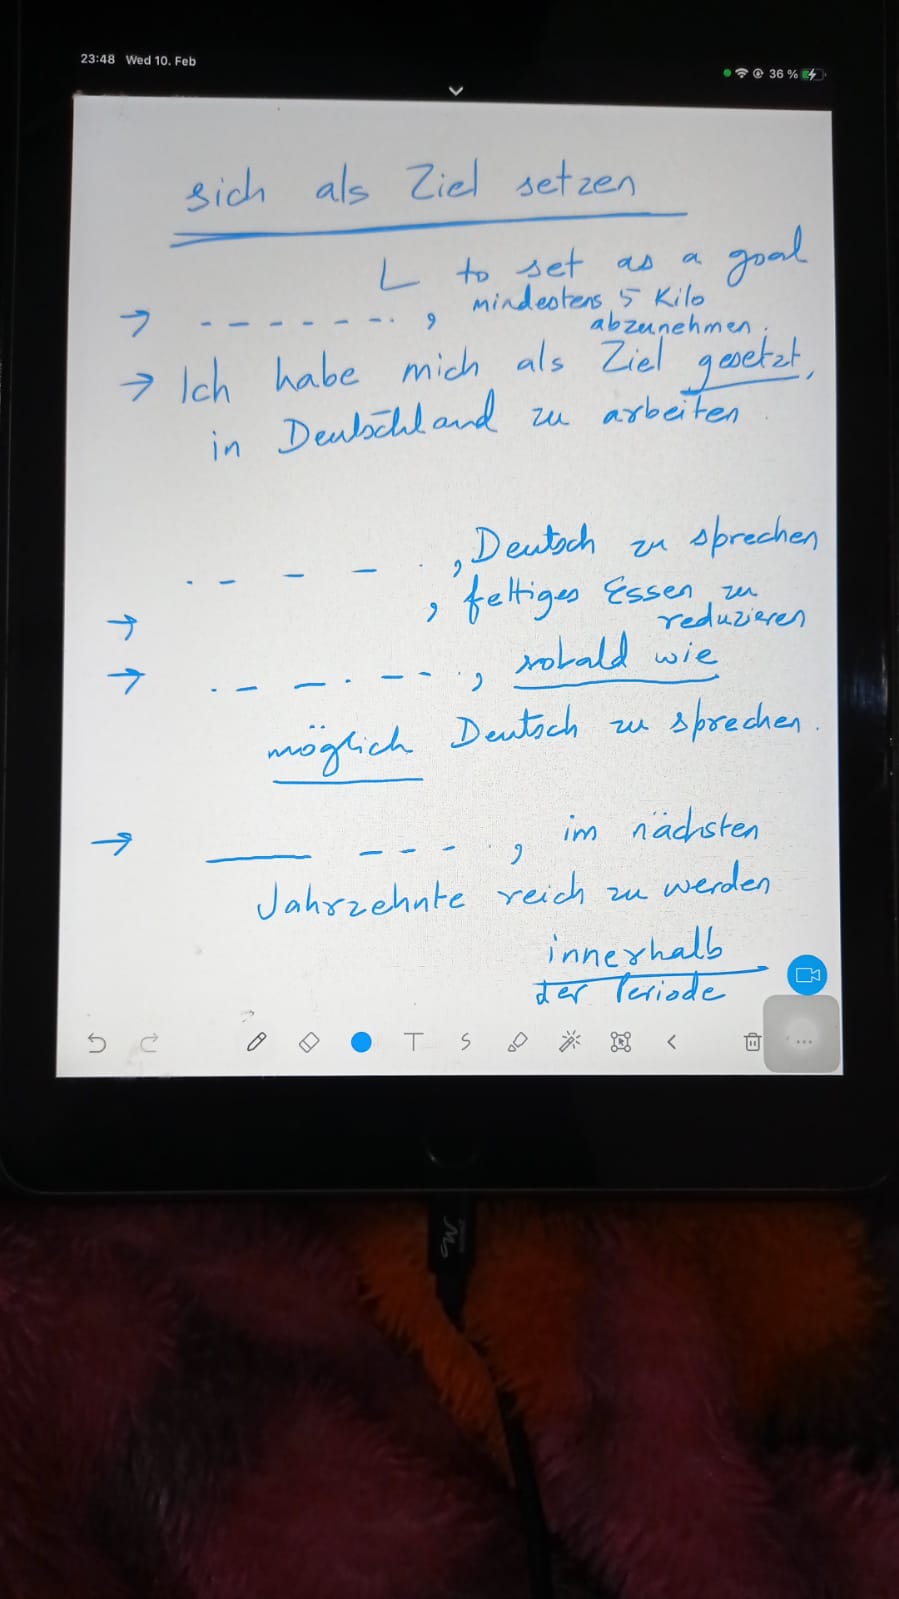 23:48 Wed 10. Feb
36 %
sich als Ziel setzen
to set as a goal
mindestens 5 Kilo
abzunehmen.
→ - - - - - - - ,
→ Ich habe mich als Ziel gesetzt,
in Deutschland zu arbeiten
- - - - , Deutsch zu sprechen
, fettiges Essen zu
→ reduzieren
→ - - - - - - , sobald wie
möglich Deutsch zu sprechen.
→ — - - - - , im nächsten
Jahrzehnte reich zu werden
innerhalb
der Periode
T